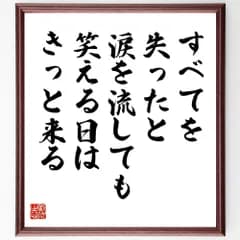 すべてを
失ったと
涙を流しても
笑える日は
きっと来る